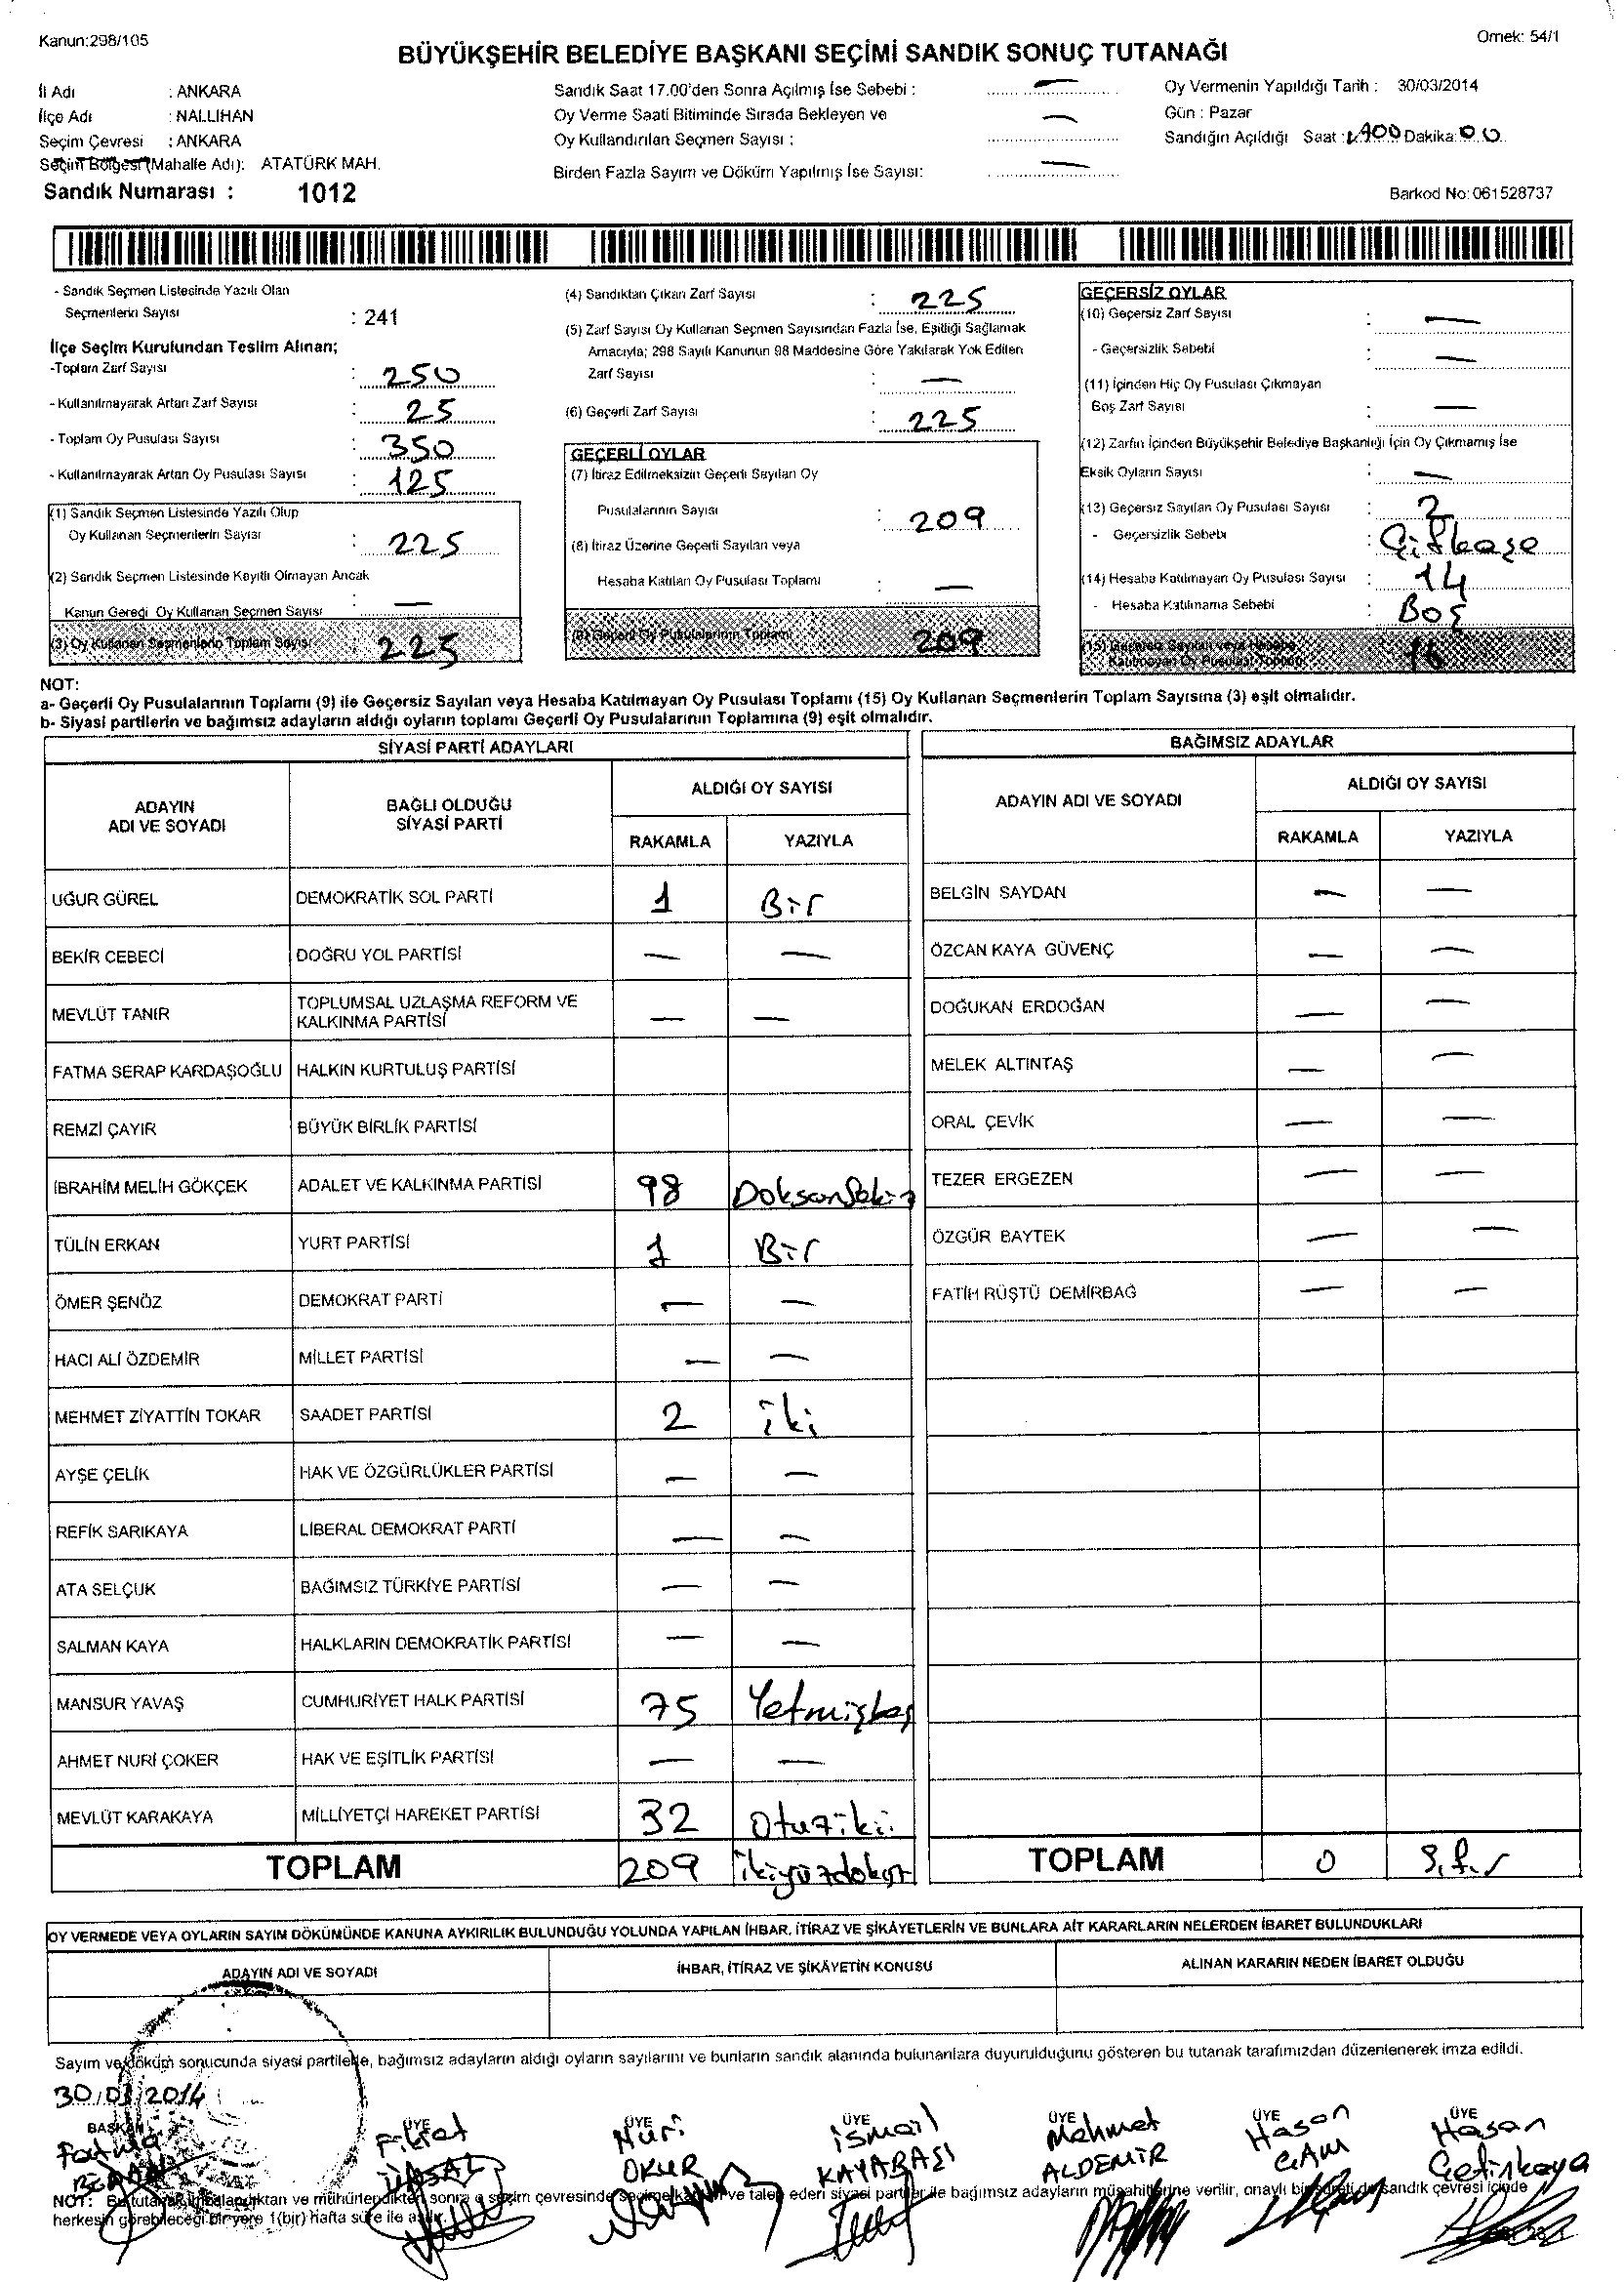 Kanun:298/105
Örnek: 54/1
BÜYÜKŞEHİR BELEDİYE BAŞKANI SEÇİMİ SANDIK SONUÇ TUTANAĞI
İl Adı : ANKARA
İlçe Adı : NALLIHAN
Seçim Çevresi : ANKARA
Seçim Bölgesi (Mahalle Adı): ATATÜRK MAH.
Sandık Numarası : 1012
Sandık Saat 17.00'den Sonra Açılmış İse Sebebi : —
Oy Verme Saati Bitiminde Sırada Bekleyen ve
Oy Kullandırılan Seçmen Sayısı : —
Birden Fazla Sayım ve Döküm Yapılmış İse Sayısı: —
Oy Vermenin Yapıldığı Tarih : 30/03/2014
Gün : Pazar
Sandığın Açıldığı Saat : Dakika: 00
Barkod No: 061528737
- Sandık Seçmen Listesinde Yazılı Olan
Seçmenlerin Sayısı : 241
İlçe Seçim Kurulundan Teslim Alınan;
-Toplam Zarf Sayısı : 250
- Kullanılmayarak Artan Zarf Sayısı : 25
- Toplam Oy Pusulası Sayısı : 350
- Kullanılmayarak Artan Oy Pusulası Sayısı : 125
(1) Sandık Seçmen Listesinde Yazılı Olup
Oy Kullanan Seçmenlerin Sayısı : 225
(2) Sandık Seçmen Listesinde Kayıtlı Olmayan Ancak
Kanun Gereği Oy Kullanan Seçmen Sayısı : —
(3) Oy Kullanan Seçmenlerin Toplam Sayısı : 225
(4) Sandıktan Çıkan Zarf Sayısı : 225
(5) Zarf Sayısı Oy Kullanan Seçmen Sayısından Fazla İse, Eşitliği Sağlamak
Amacıyla; 298 Sayılı Kanunun 98 Maddesine Göre Yakılarak Yok Edilen
Zarf Sayısı : —
(6) Geçerli Zarf Sayısı : 225
GEÇERLİ OYLAR
(7) İtiraz Edilmeksizin Geçerli Sayılan Oy
Pusulalarının Sayısı : 209
(8) İtiraz Üzerine Geçerli Sayılan veya
Hesaba Katılan Oy Pusulası Toplamı : —
(9) Geçerli Oy Pusulalarının Toplamı : 209
GEÇERSİZ OYLAR
(10) Geçersiz Zarf Sayısı : —
- Geçersizlik Sebebi : —
(11) İçinden Hiç Oy Pusulası Çıkmayan
Boş Zarf Sayısı : —
(12) Zarfın İçinden Büyükşehir Belediye Başkanlığı İçin Oy Çıkmamış İse
Eksik Oyların Sayısı : —
(13) Geçersiz Sayılan Oy Pusulası Sayısı : 2
- Geçersizlik Sebebi : Çiftkaşe
(14) Hesaba Katılmayan Oy Pusulası Sayısı : 14
- Hesaba Katılmama Sebebi : Boş
(15) Geçersiz Sayılan veya Hesaba
Katılmayan Oy Pusulası Toplamı : 16
NOT:
a- Geçerli Oy Pusulalarının Toplamı (9) ile Geçersiz Sayılan veya Hesaba Katılmayan Oy Pusulası Toplamı (15) Oy Kullanan Seçmenlerin Toplam Sayısına (3) eşit olmalıdır.
b- Siyasi partilerin ve bağımsız adayların aldığı oyların toplamı Geçerli Oy Pusulalarının Toplamına (9) eşit olmalıdır.
SİYASİ PARTİ ADAYLARI
ADAYIN ADI VE SOYADI
BAĞLI OLDUĞU SİYASİ PARTİ
ALDIĞI OY SAYISI
RAKAMLA YAZIYLA
UĞUR GÜREL DEMOKRATİK SOL PARTİ 1 Bir
BEKİR CEBECİ DOĞRU YOL PARTİSİ — —
MEVLÜT TANIR TOPLUMSAL UZLAŞMA REFORM VE KALKINMA PARTİSİ — —
FATMA SERAP KARDAŞOĞLU HALKIN KURTULUŞ PARTİSİ
REMZİ ÇAYIR BÜYÜK BİRLİK PARTİSİ
İBRAHİM MELİH GÖKÇEK ADALET VE KALKINMA PARTİSİ 98 Doksansekiz
TÜLİN ERKAN YURT PARTİSİ 1 Bir
ÖMER ŞENÖZ DEMOKRAT PARTİ — —
HACI ALİ ÖZDEMİR MİLLET PARTİSİ — —
MEHMET ZİYATTİN TOKAR SAADET PARTİSİ 2 iki
AYŞE ÇELİK HAK VE ÖZGÜRLÜKLER PARTİSİ — —
REFİK SARIKAYA LİBERAL DEMOKRAT PARTİ — —
ATA SELÇUK BAĞIMSIZ TÜRKİYE PARTİSİ — —
SALMAN KAYA HALKLARIN DEMOKRATİK PARTİSİ — —
MANSUR YAVAŞ CUMHURİYET HALK PARTİSİ 75 Yetmişbeş
AHMET NURİ ÇOKER HAK VE EŞİTLİK PARTİSİ — —
MEVLÜT KARAKAYA MİLLİYETÇİ HAREKET PARTİSİ 32 Otuziki
TOPLAM 209 ikiyüzdokuz
BAĞIMSIZ ADAYLAR
ADAYIN ADI VE SOYADI
ALDIĞI OY SAYISI
RAKAMLA YAZIYLA
BELGİN SAYDAN — —
ÖZCAN KAYA GÜVENÇ — —
DOĞUKAN ERDOĞAN — —
MELEK ALTINTAŞ — —
ORAL ÇEVİK — —
TEZER ERGEZEN — —
ÖZGÜR BAYTEK — —
FATİH RÜŞTÜ DEMİRBAĞ — —
TOPLAM 0 Sıfır
OY VERMEDE VEYA OYLARIN SAYIM DÖKÜMÜNDE KANUNA AYKIRILIK BULUNDUĞU YOLUNDA YAPILAN İHBAR, İTİRAZ VE ŞİKÂYETLERİN VE BUNLARA AİT KARARLARIN NELERDEN İBARET BULUNDUKLARI
ADAYIN ADI VE SOYADI
İHBAR, İTİRAZ VE ŞİKÂYETİN KONUSU
ALINAN KARARIN NEDEN İBARET OLDUĞU
Sayım ve döküm sonucunda siyasi partilerle, bağımsız adayların aldığı oyların sayılarını ve bunların sandık alanında bulunanlara duyurulduğunu gösteren bu tutanak tarafımızdan düzenlenerek imza edildi.
30/03/2014
BAŞKAN ÜYE ÜYE ÜYE ÜYE ÜYE ÜYE
Fatma Fikret Nuri ismail Mehmet Hasan Hasan
ÜNSAL OKUR KAYABAŞI ALDEMİR ÇAM Çetinkaya
NOT: Bu tutanak imzalandıktan ve mühürlendikten sonra o seçim çevresinde seçime katılan ve talep eden siyasi partiler ile bağımsız adayların müşahitlerine verilir, onaylı bir sureti de sandık çevresi içinde
herkesin görebileceği bir yere 1(bir) hafta süre ile asılır.